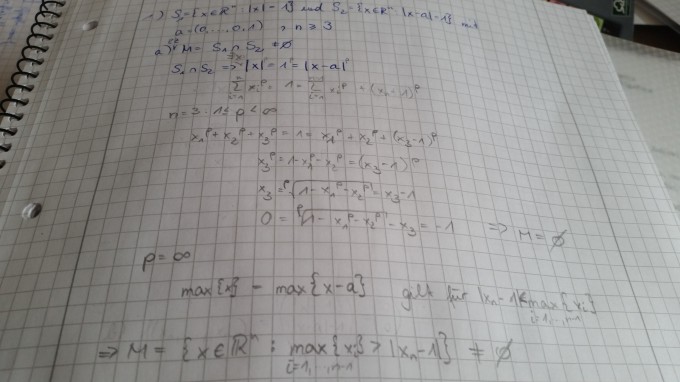 1) S₁={x∈ℝⁿ: |x|=1} und S₂={x∈ℝⁿ: |x-a|=1} mit
a=(0,...,0,1), n≥3
a) M = S₁∩S₂ ≠ ∅
S₁∩S₂ => |x|ᵖ=1=|x-a|ᵖ
∑ᵢ₌₁ⁿ xᵢᵖ = 1 = ∑ᵢ₌₁ⁿ⁻¹ xᵢᵖ + (xₙ-1)ᵖ
n=3 1≤p<∞
x₁ᵖ+x₂ᵖ+x₃ᵖ=1=x₁ᵖ+x₂ᵖ+(x₃-1)ᵖ
x₃ᵖ=1-x₁ᵖ-x₂ᵖ=(x₃-1)ᵖ
x₃=ᵖ√(1-x₁ᵖ-x₂ᵖ)=x₃-1
0=ᵖ√(1-x₁ᵖ-x₂ᵖ)-x₃=-1 => M=∅
p=∞
max{x}=max{x-a} gilt für |xₙ-1|<max{xᵢ} i=1,..,n-1
=> M={x∈ℝⁿ: max{xᵢ}>|xₙ-1|} ≠ ∅
i=1,...,n-1